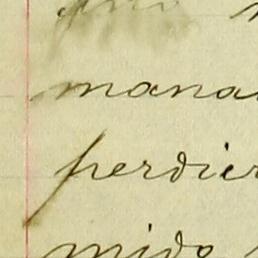 mana
perdier
mido